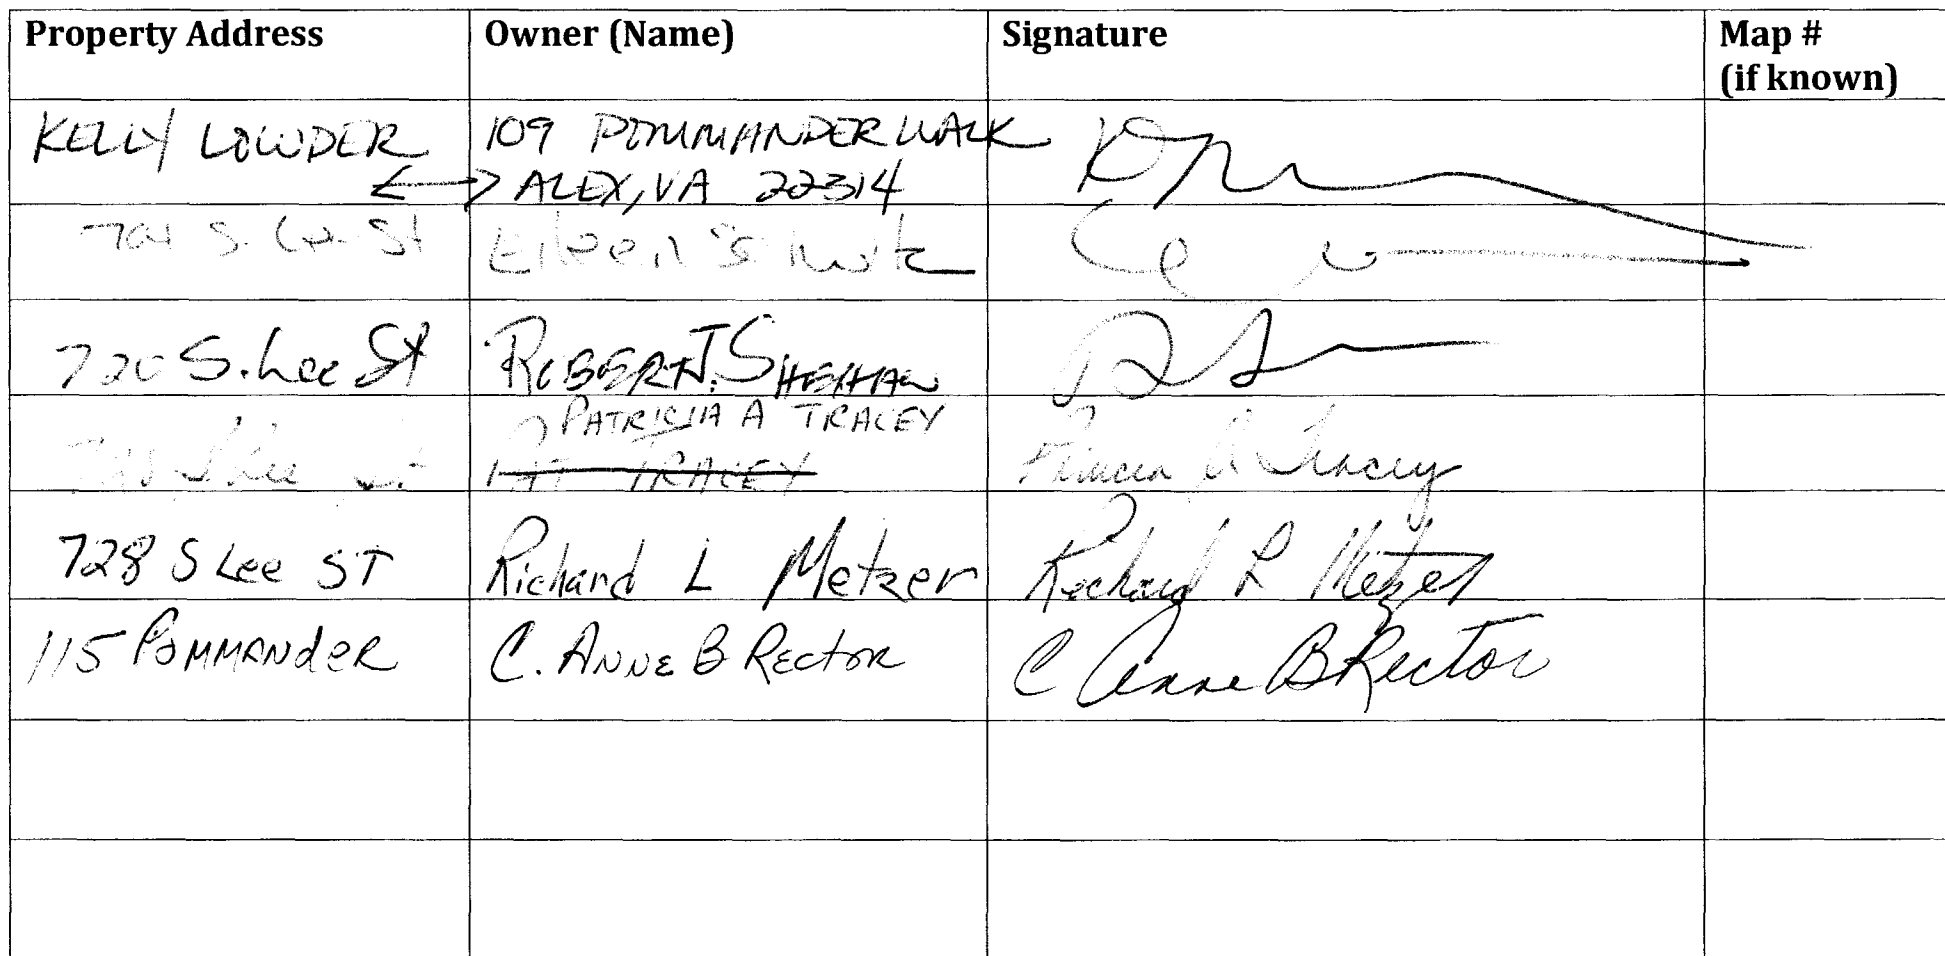 Property Address Owner (Name) Signature Map #
(if known)
KELLY LOWDER 109 POMMANDER WALK
ALEX, VA 22314
S. Lee St Eileen
720 S. Lee St ROBERT J. SHEEHAN
PATRICIA A TRACEY
S Lee St PAT TRACEY Patricia A Tracey
728 S Lee ST Richard L Metzer Richard L Metzer
115 POMMANdeR C. ANNE B RECTOR C Anne B Rector